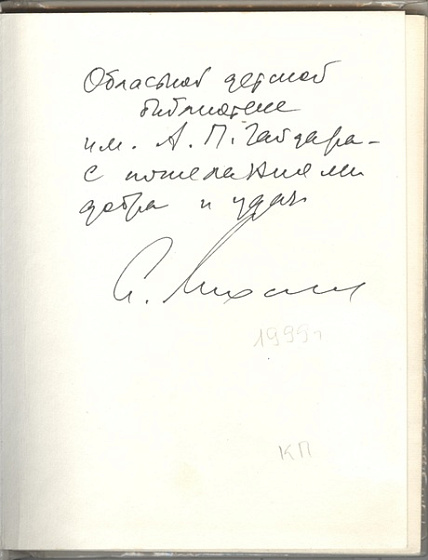 Областной детской
библиотеке
им. А. П. Гайдара -
с пожеланиями
добра и удач
1999г
КП